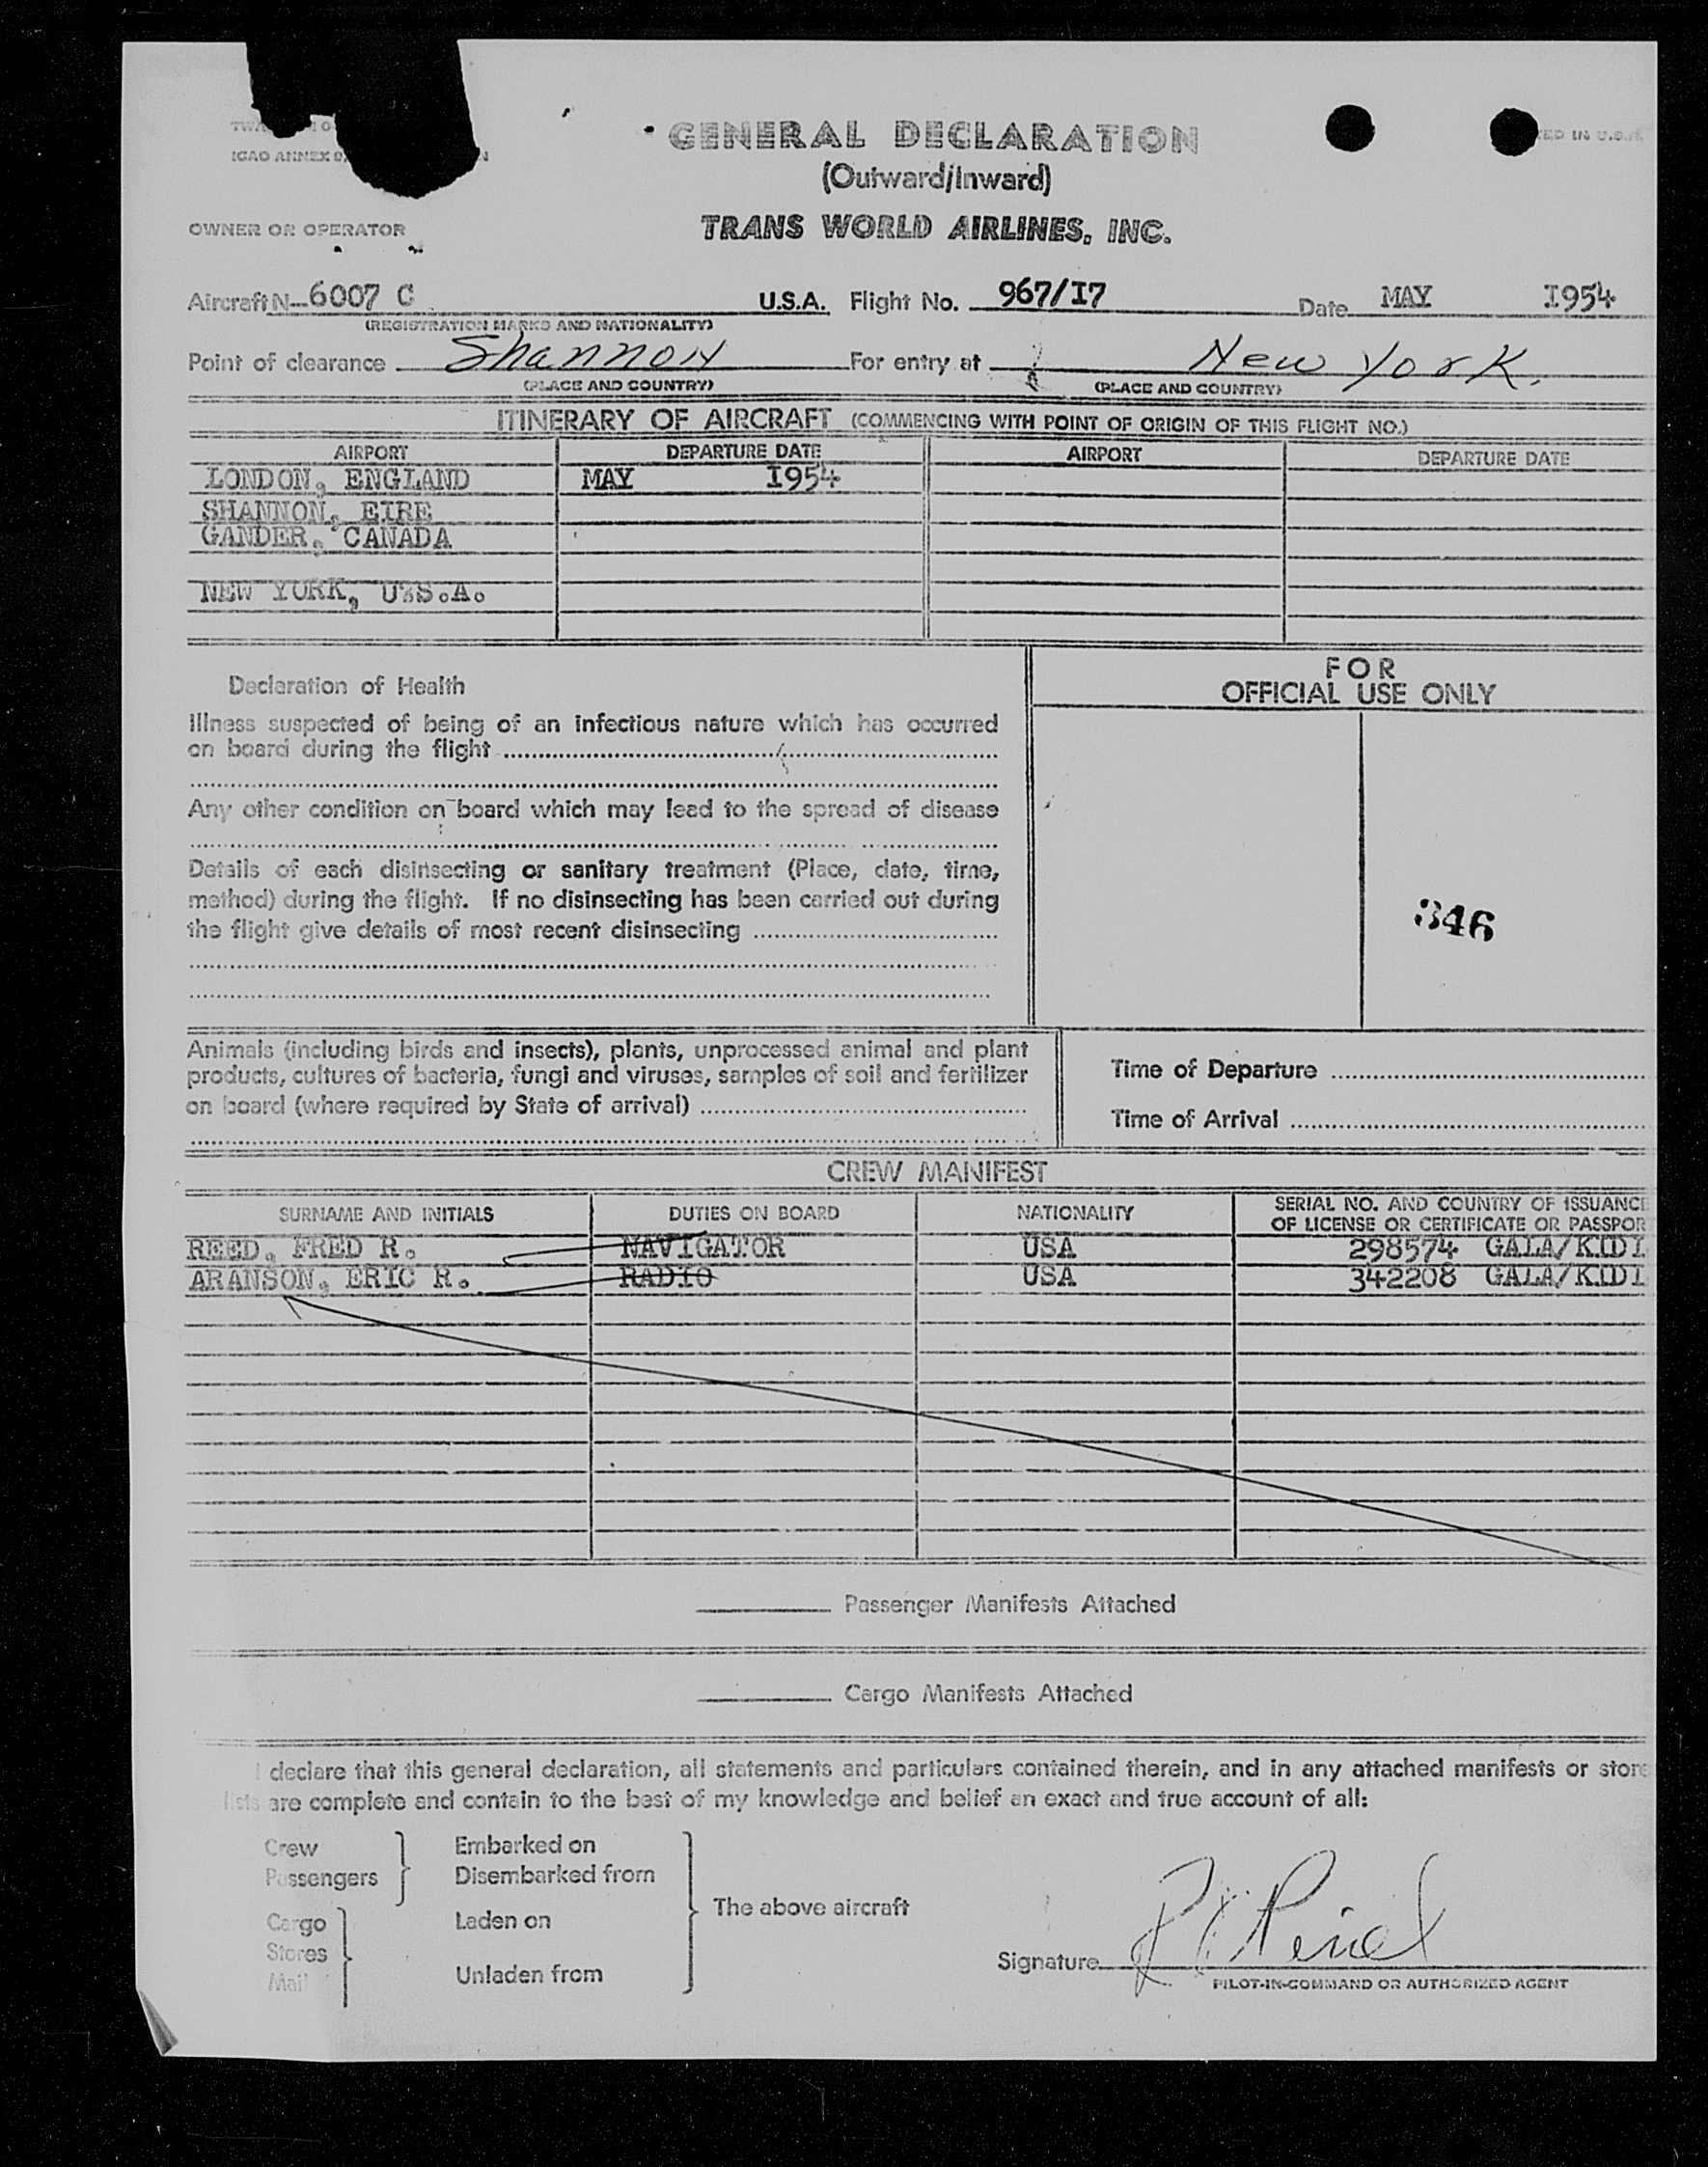 GENERAL DECLARATION
(Outward/Inward)
ICAO ANNEX 9
OWNER OR OPERATOR
TRANS WORLD AIRLINES, INC.
Aircraft N 6007 C U.S.A. Flight No. 967/I7 Date MAY I954
(REGISTRATION MARKS AND NATIONALITY)
Point of clearance Shannon For entry at New York.
(PLACE AND COUNTRY) (PLACE AND COUNTRY)
ITINERARY OF AIRCRAFT (COMMENCING WITH POINT OF ORIGIN OF THIS FLIGHT NO.)
AIRPORT DEPARTURE DATE AIRPORT DEPARTURE DATE
LONDON, ENGLAND MAY I954
SHANNON, EIRE
GANDER, CANADA
NEW YORK, U.S.A.
Declaration of Health
FOR
OFFICIAL USE ONLY
Illness suspected of being of an infectious nature which has occurred
on board during the flight
Any other condition on board which may lead to the spread of disease
Details of each disinsecting or sanitary treatment (Place, date, time,
method) during the flight. If no disinsecting has been carried out during
the flight give details of most recent disinsecting
346
Animals (including birds and insects), plants, unprocessed animal and plant
products, cultures of bacteria, fungi and viruses, samples of soil and fertilizer
on board (where required by State of arrival)
Time of Departure
Time of Arrival
CREW MANIFEST
SURNAME AND INITIALS DUTIES ON BOARD NATIONALITY SERIAL NO. AND COUNTRY OF ISSUANCE
OF LICENSE OR CERTIFICATE OR PASSPOR
REED, FRED R. NAVIGATOR USA 298574 GALA/KIDL
ARANSON, ERIC R. RADIO USA 342208 GALA/KIDL
Passenger Manifests Attached
Cargo Manifests Attached
I declare that this general declaration, all statements and particulars contained therein, and in any attached manifests or store
lists are complete and contain to the best of my knowledge and belief an exact and true account of all:
Crew
Passengers
Embarked on
Disembarked from
Cargo
Stores
Mail
Laden on
Unladen from
The above aircraft
Signature
PILOT-IN-COMMAND OR AUTHORIZED AGENT